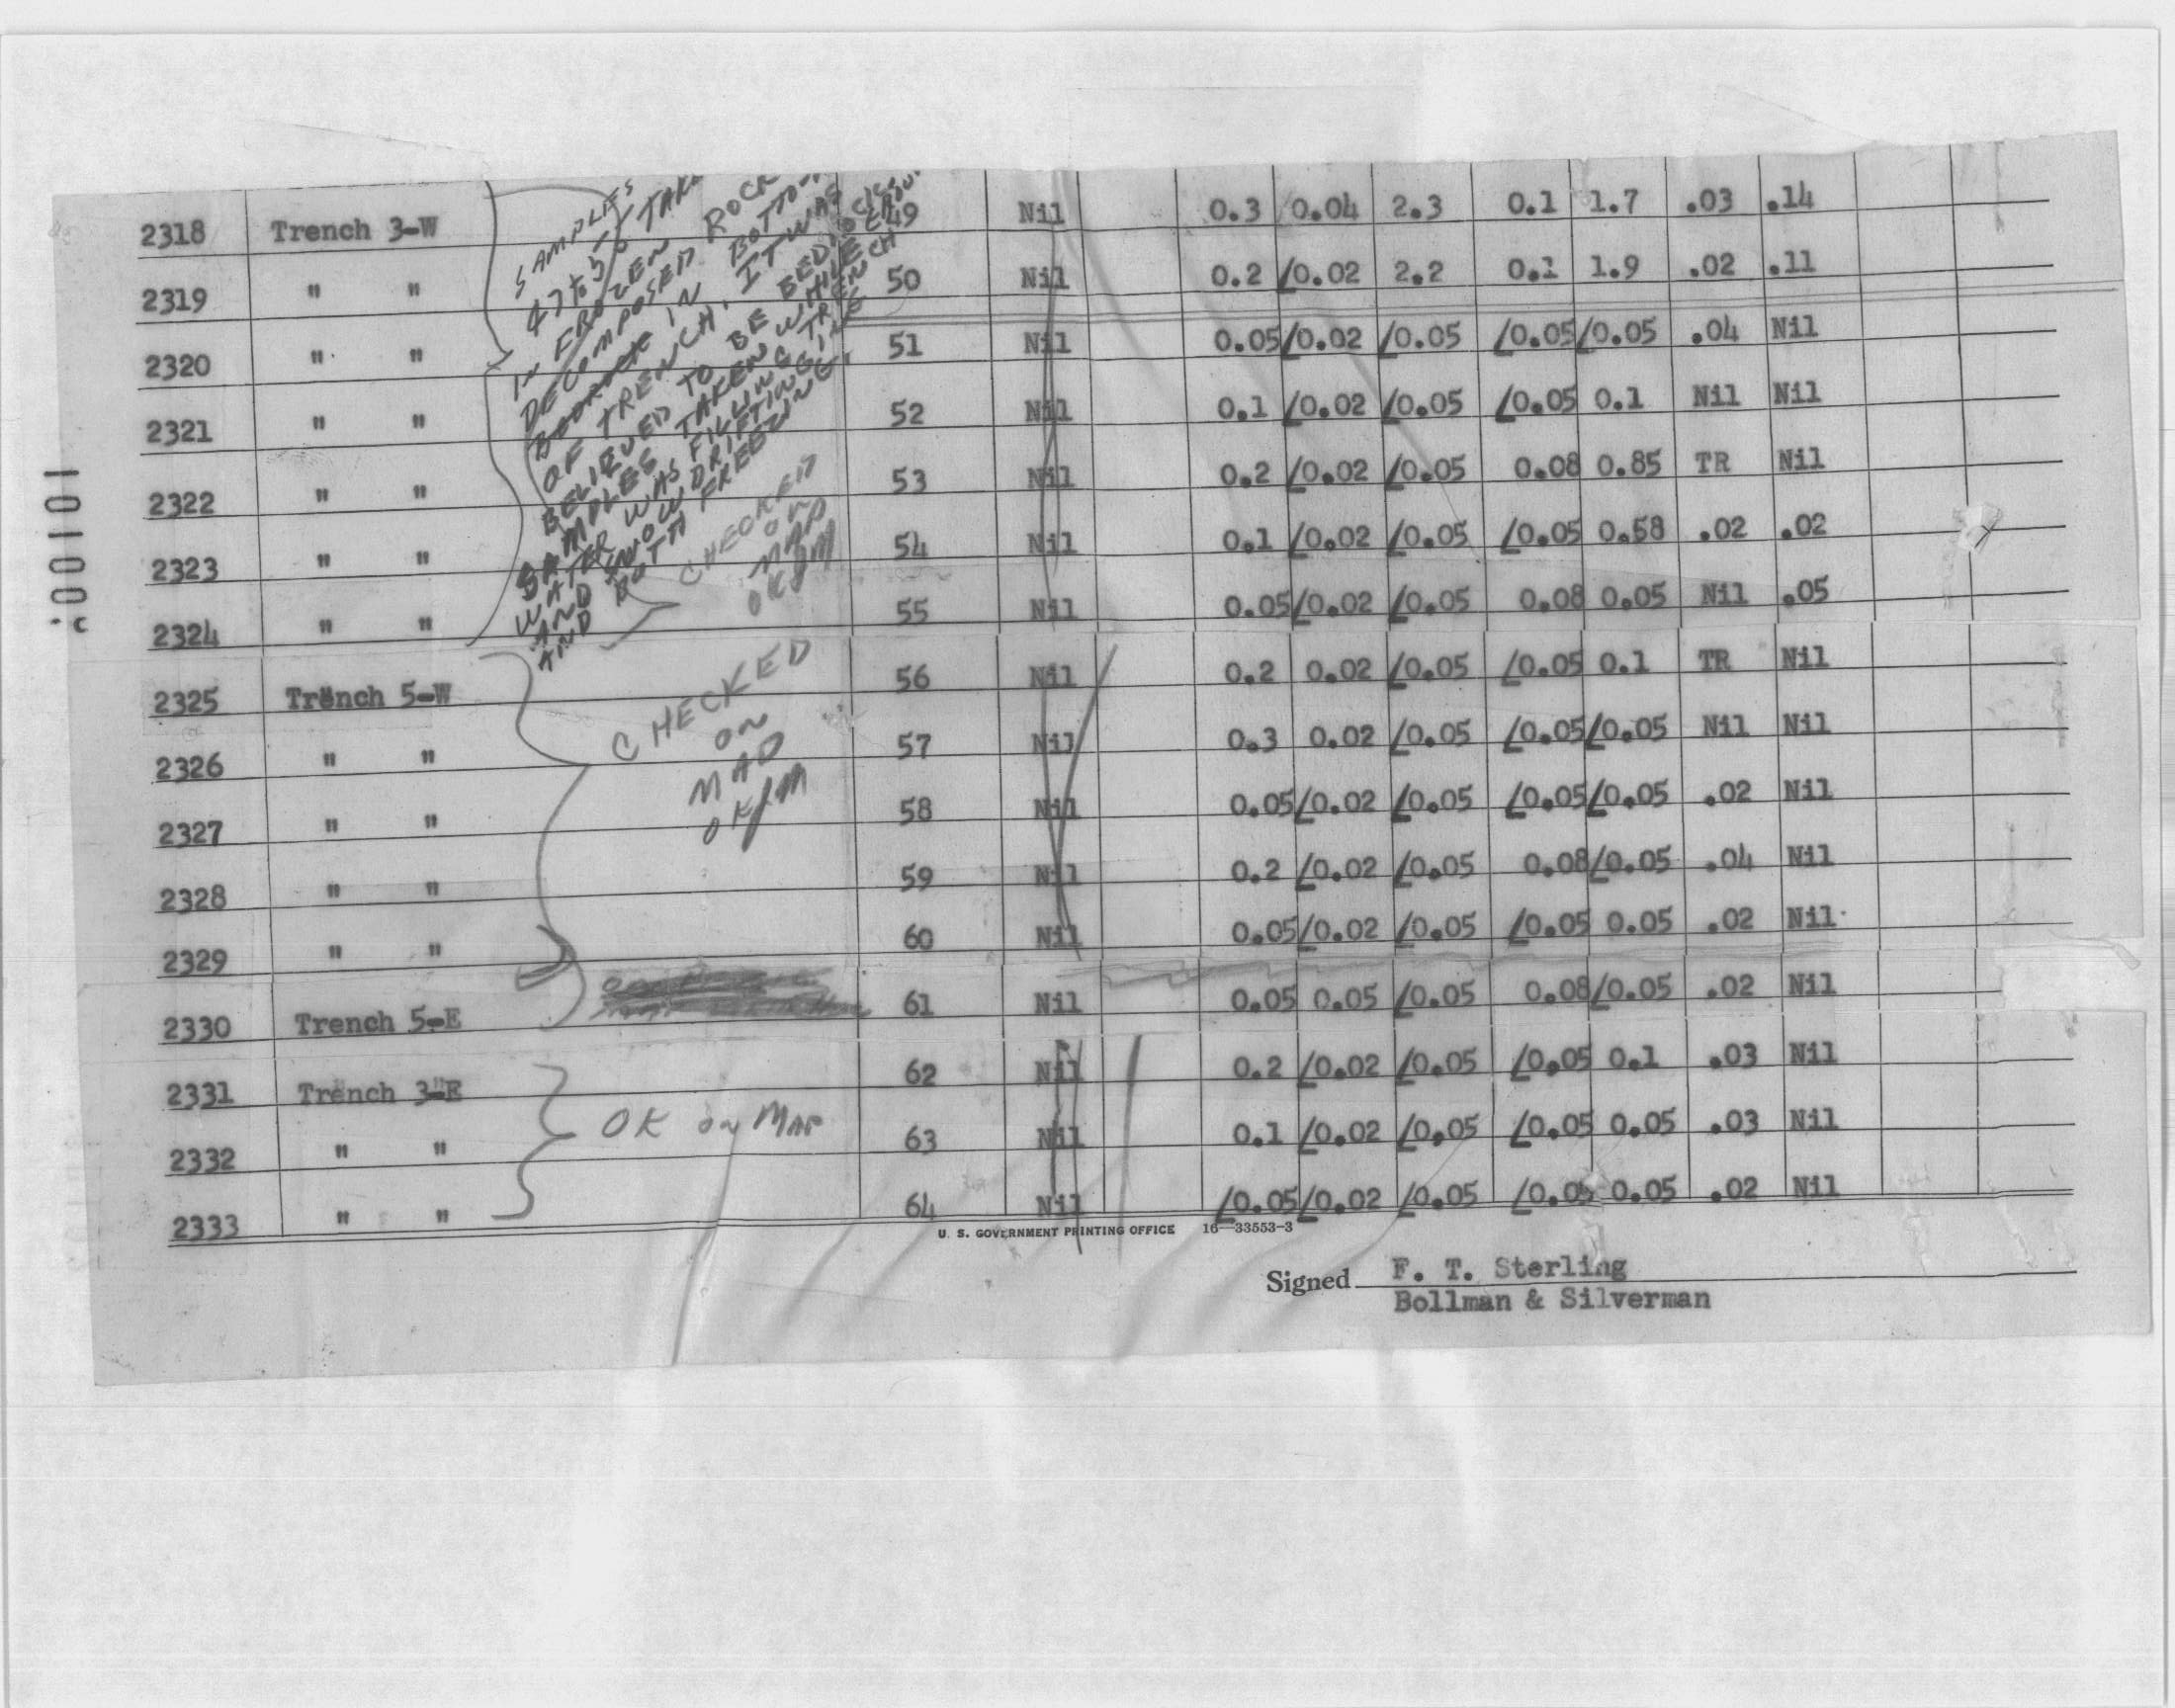 2318 Trench 3-W 49 Nil 0.3 /0.04 2.3 0.1 1.7 .03 .14
2319 " " 50 Nil 0.2 /0.02 2.2 0.1 1.9 .02 .11
2320 " " 51 Nil 0.05 /0.02 /0.05 /0.05 /0.05 .04 Nil
2321 " " 52 Nil 0.1 /0.02 /0.05 /0.05 0.1 Nil Nil
2322 " " 53 Nil 0.2 /0.02 /0.05 0.08 0.85 TR Nil
2323 " " 54 Nil 0.1 /0.02 /0.05 /0.05 0.58 .02 .02
2324 " " 55 Nil 0.05 /0.02 /0.05 0.08 0.05 Nil .05
2325 Trench 5-W 56 Nil 0.2 0.02 /0.05 /0.05 0.1 TR Nil
2326 " " 57 Nil 0.3 0.02 /0.05 /0.05 /0.05 Nil Nil
2327 " " 58 Nil 0.05 /0.02 /0.05 /0.05 /0.05 .02 Nil
2328 " " 59 Nil 0.2 /0.02 /0.05 0.08 /0.05 .04 Nil
2329 " " 60 Nil 0.05 /0.02 /0.05 /0.05 0.05 .02 Nil
2330 Trench 5-E 61 Nil 0.05 0.05 /0.05 0.08 /0.05 .02 Nil
2331 Trench 3-E 62 Nil 0.2 /0.02 /0.05 /0.05 0.1 .03 Nil
2332 " " 63 Nil 0.1 /0.02 /0.05 /0.05 0.05 .03 Nil
2333 " " 64 Nil /0.05 /0.02 /0.05 /0.05 0.05 .02 Nil
SAMPLES
47 to 50 TAKEN
IN FROZEN
DECOMPOSED ROCK
IN BOTTOM
OF TRENCH, IT WAS
BELIEVED TO BE BEDROCK
SAMPLES TAKEN WHILE
WATER WAS FILLING TRENCH
AND SNOW DRIFTING IN
AND BOTH FREEZING.
CHECKED
ON
MAP
OK
CHECKED
ON
MAP
OK
OK on MAP
U. S. GOVERNMENT PRINTING OFFICE 16—33553-3
Signed F. T. Sterling
Bollman & Silverman